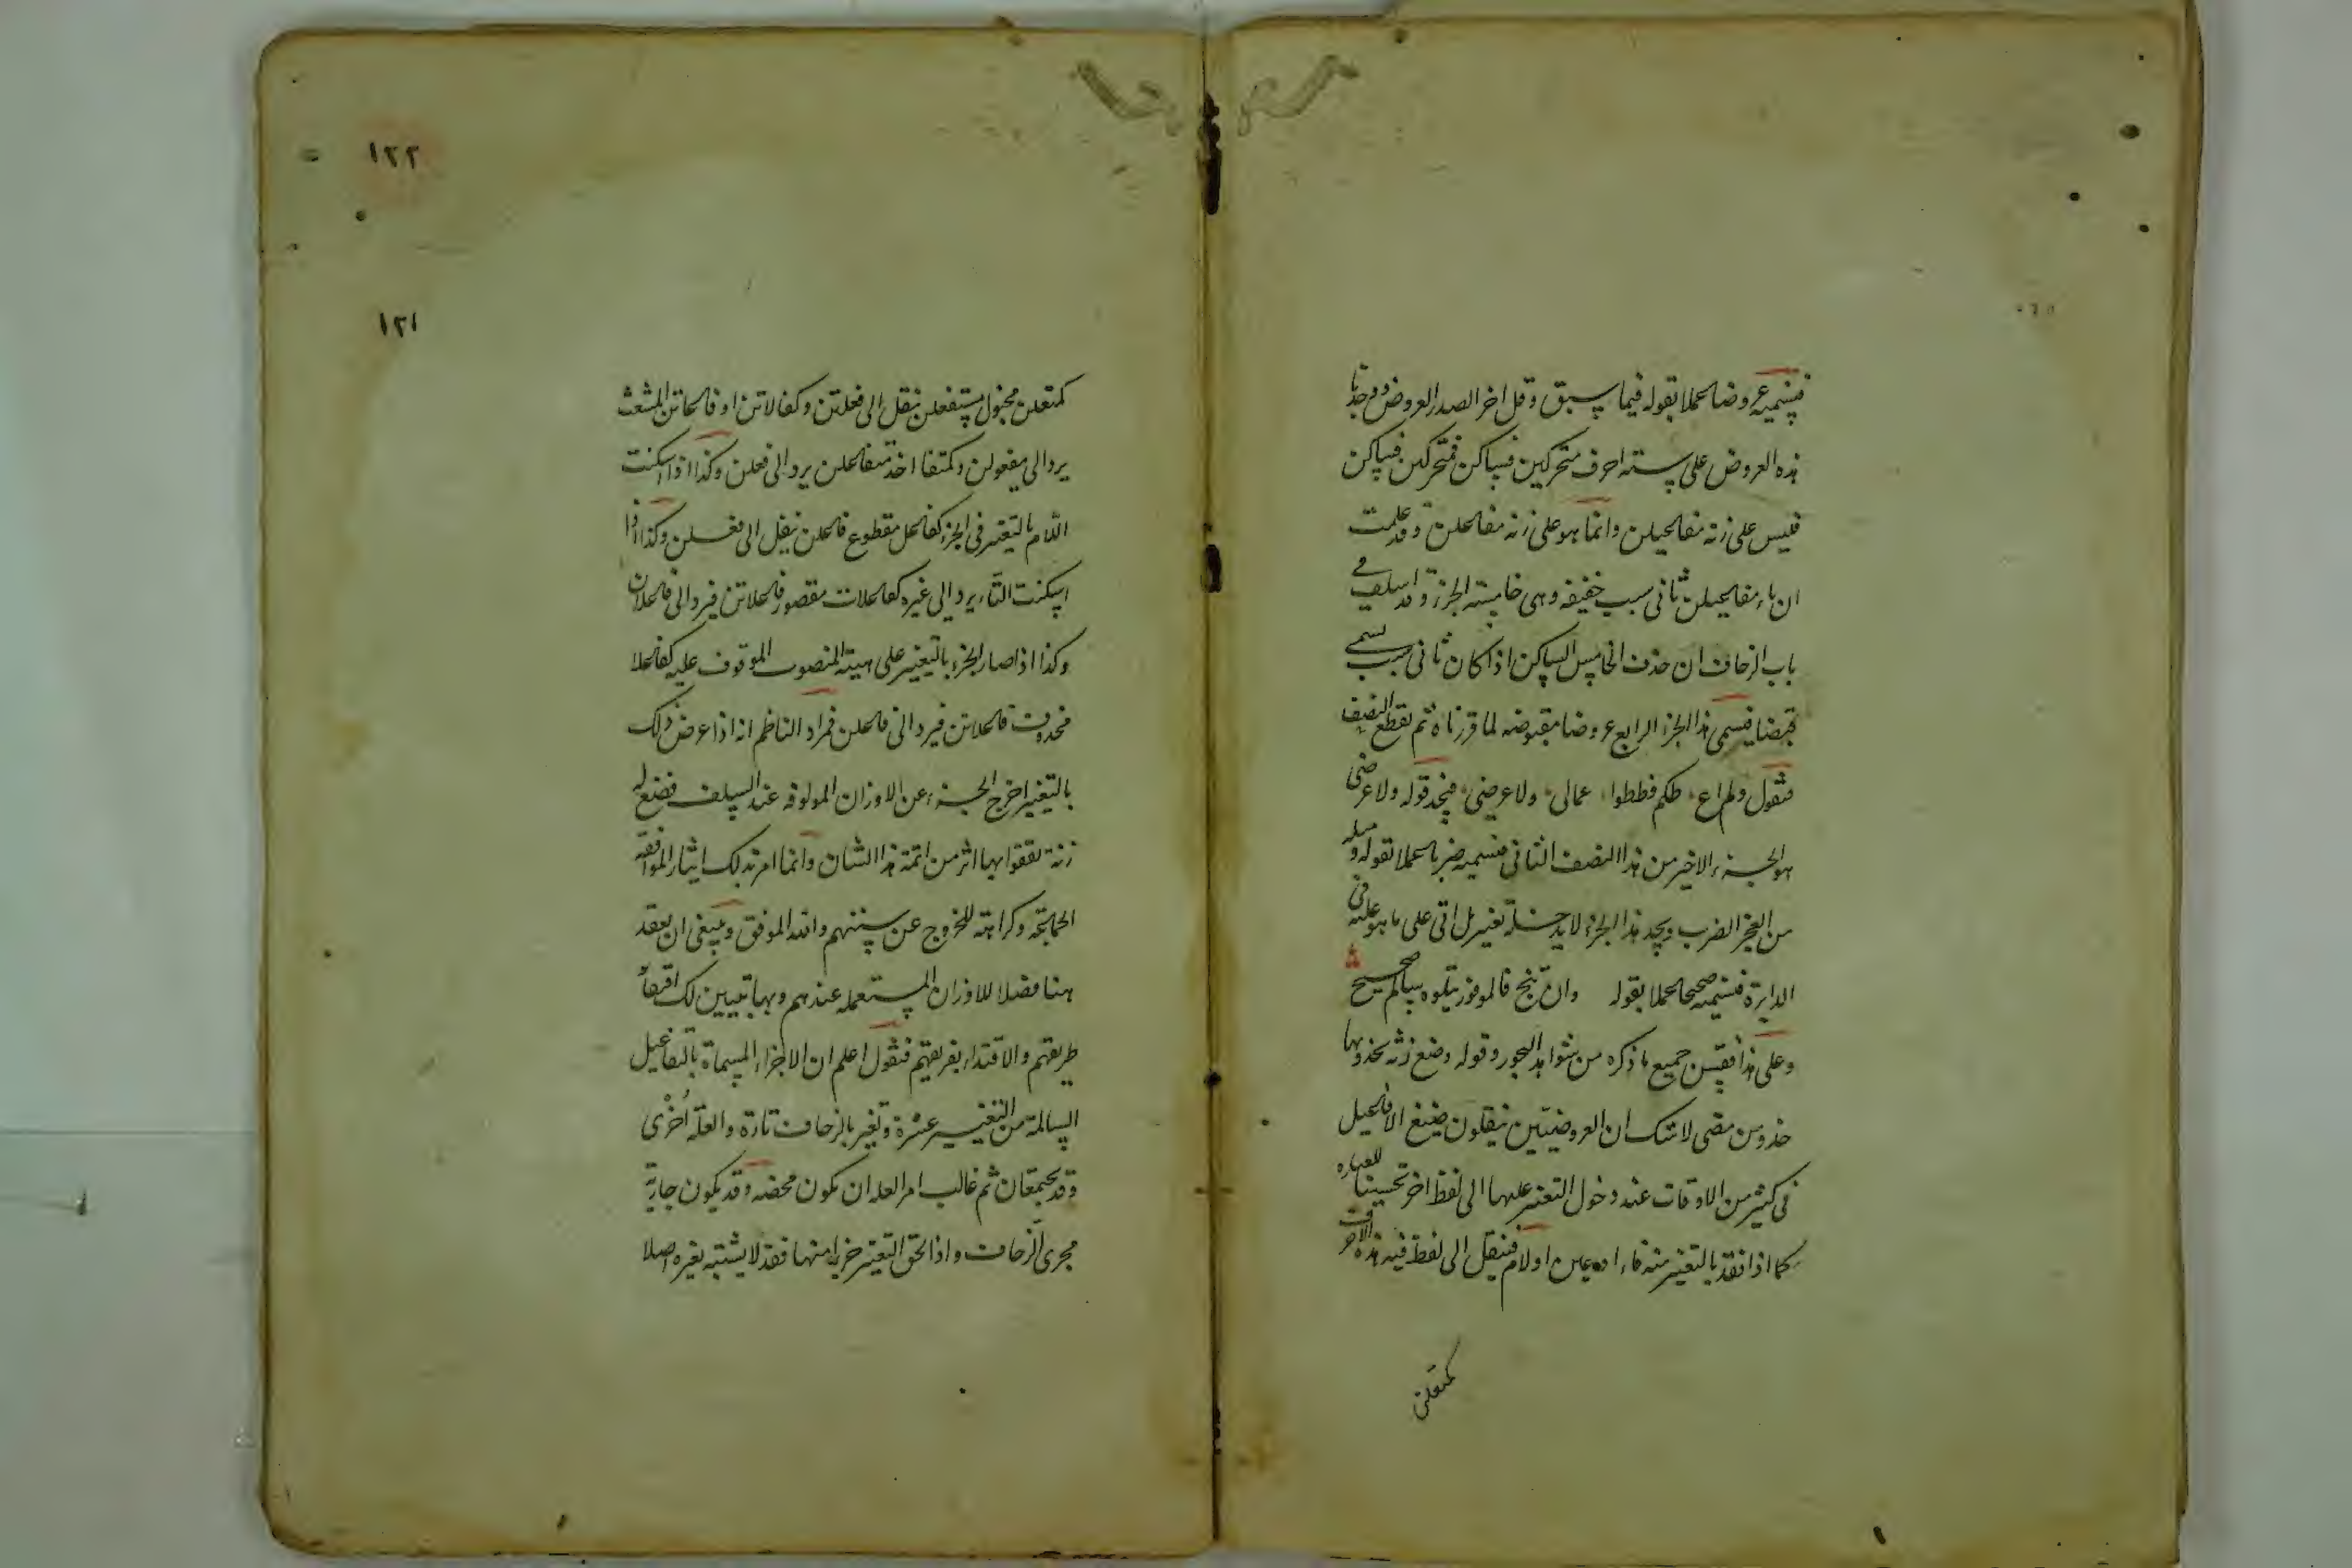 فنسميه عروضا عملا بقوله فيما سبق وقل اخر الصدر العروض ووجدنا
هذه العروض على ستة احرف متحركين فساكن فمتحركين فساكن
فليس على زنة مفاعيلن وانما هو على زنة مفاعلن وقد علمت
ان ياء مفاعيلن ثاني سبب خفيفة وهي خامسة الجزء وقد اسلف في
باب الزحاف ان حذف الخامس الساكن اذا كان ثاني سبب يسمى
قبضا فيسمى هذا الجزء الرابع عروضا مقبوضة لما قررناه ثم نقطع النصف
فنقول ولم اع طكم فططوا عمالى ولا عرضي فنجد قوله ولا عرضي
هو الجزء الاخير من هذا النصف الثاني فنسميه ضربا عملا بقوله ومثله
من العجز الضرب ونجد هذا الجزء لا يدخله تغيير بل اتى على ما هو عليه في
الدايرة فنسميه صحيحا عملا بقوله وان تنج فالموفور يتلوه سالم صحيح
وعلى هذا فقس جميع ما ذكره من شواهد البحور وقوله وضع زنة تحذو بها
حذو من مضى لا شك ان العروضيين ينقلون صيغ الافاعيل
في كثير من الاوقات عند دخول التغيير عليها الى لفظ اخر تحسينا للعبارة
كما اذا فقد بالتغيير منه فاء او عين او لام فينقل الى لفظ فيه هذه الاحرف
كمتعلن
١٢٢
١٢١
كمتعلن مخبول مستفعلن ينقل الى فعلتن وكفالاتن او فاعاتن المشعث
يرد الى مفعولن وكمتفا احذ متفاعلن يرد الى فعلن وكذا اذا اسكنت
اللام بالتغيير في الجزء كفاعل مقطوع فاعلن ينقل الى فعلن وكذا اذا
اسكنت التاء يرد الى غيره كفاعلات مقصور فاعلاتن فيرد الى فاعلان
وكذا اذا صار الجزء بالتغيير على هيئة المنصوب الموقوف عليه كفاعلا
محذوف فاعلاتن فيرد الى فاعلن فمراد الناظم انه اذا عرض ذلك
بالتغيير اخرج الجزء عن الاوزان المالوفة عند السلف فضع له
زنة تقفوا بها اثر من ائمة هذا الشان وانما امر بذلك ايثار الموافقة
الجماعة وكراهة للخروج عن سننهم والله الموفق وينبغي ان نعقد
هنا فصلا للاوزان المستعملة عندهم وبها تبيين لك اقتفاء
طريقهم والاقتداء بفريقهم فنقول اعلم ان الاجزاء المسماة بالتفاعيل
السالمة من التغيير عشرة وتغير بالزحاف تارة والعلة اخرى
وقد يجتمعان ثم غالب امر العلة ان تكون محضة وقد يكون جارية
مجرى الزحاف واذا لحق التغيير جزءا منها فقد لا يشتبه بغيره اصلا